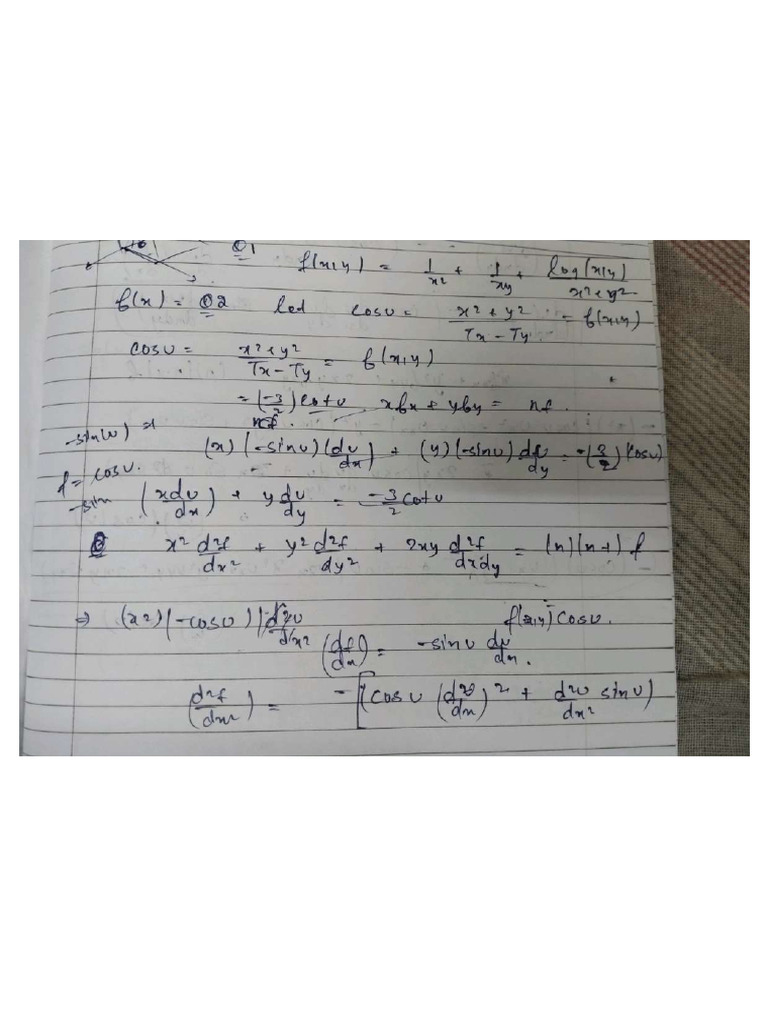 Q1
f(x,y) = 1/x² + 1/xy + log(x/y)/x²+y²
f(x) = Q2 Let cosu = x²+y²/√x-√y = f(x,y)
cosu = x²+y²/√x-√y = f(x,y)
= (-3/2) cotu xfx + yfy = nf.
nf.
-sin(u) ⇒
(x)(-sinu)(du/dx) + (y)(-sinu) du/dy = -(3/2)(cosu)
f = cosu.
-sin (xdu/dx) + y du/dy = -3/2 cotu
x² d²f/dx² + y² d²f/dy² + 2xy d²f/dxdy = (n)(n+1) f
⇒ (x²)(-cosu)) d²u/dx² f(x,y) = cosu.
(df/dx) = -sinu du/dx.
(d²f/dx²) = -[(cosu (du/dx)² + d²u/dx² sinu)